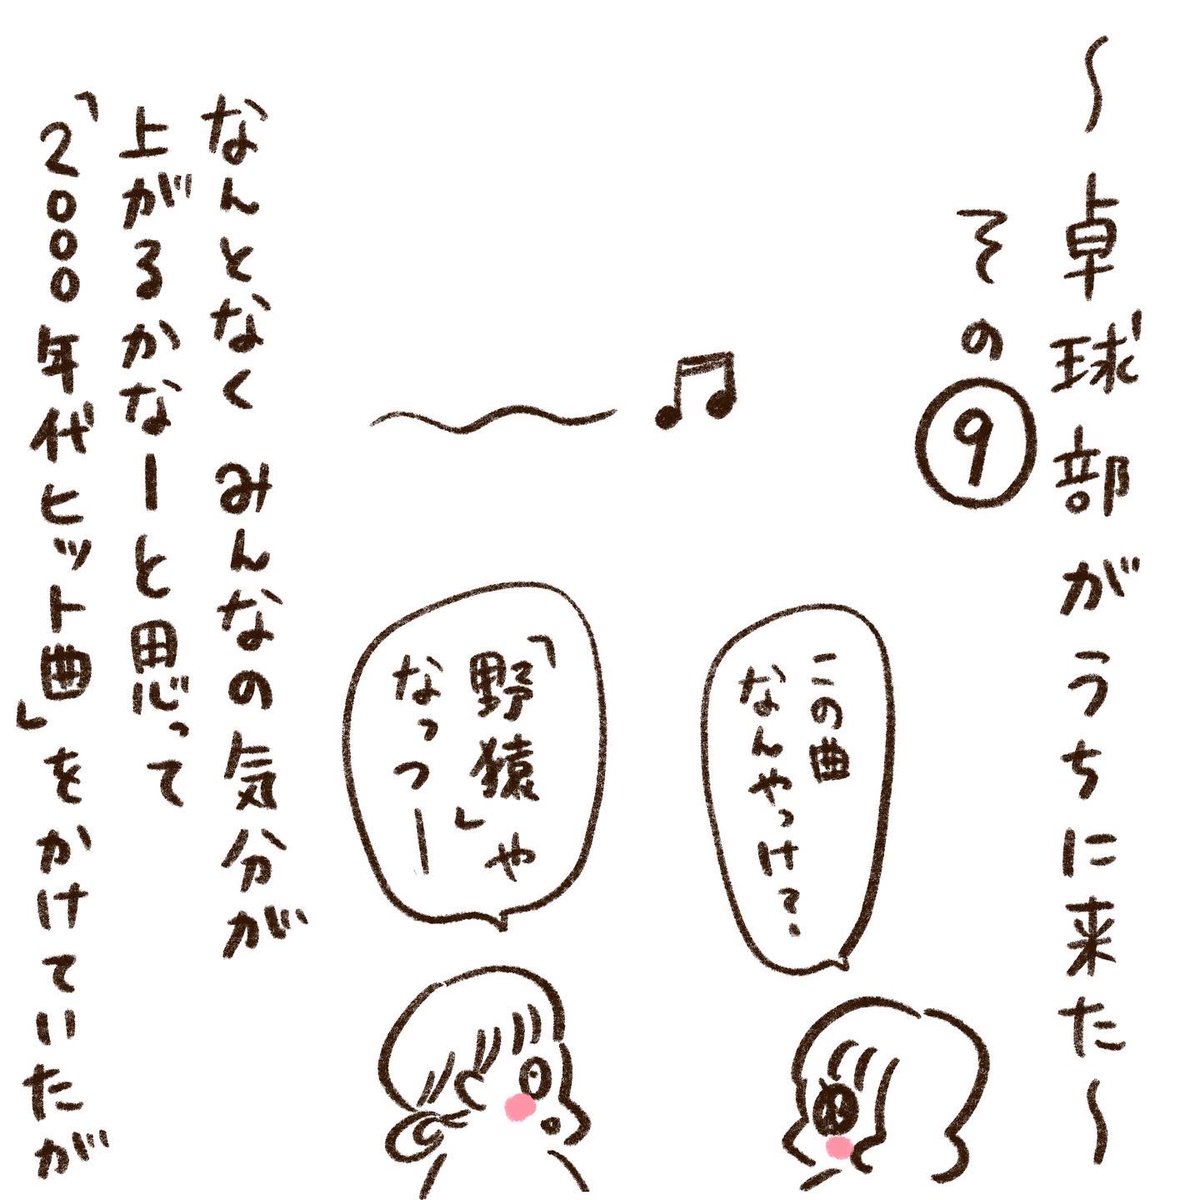 〜卓球部がうちに来た〜
その⑨
この曲
なんやっけ?
「野猿」や
なっつー
なんとなく みんなの気分が
上がるかなーと思って
「2000年代ヒット曲」をかけていたが